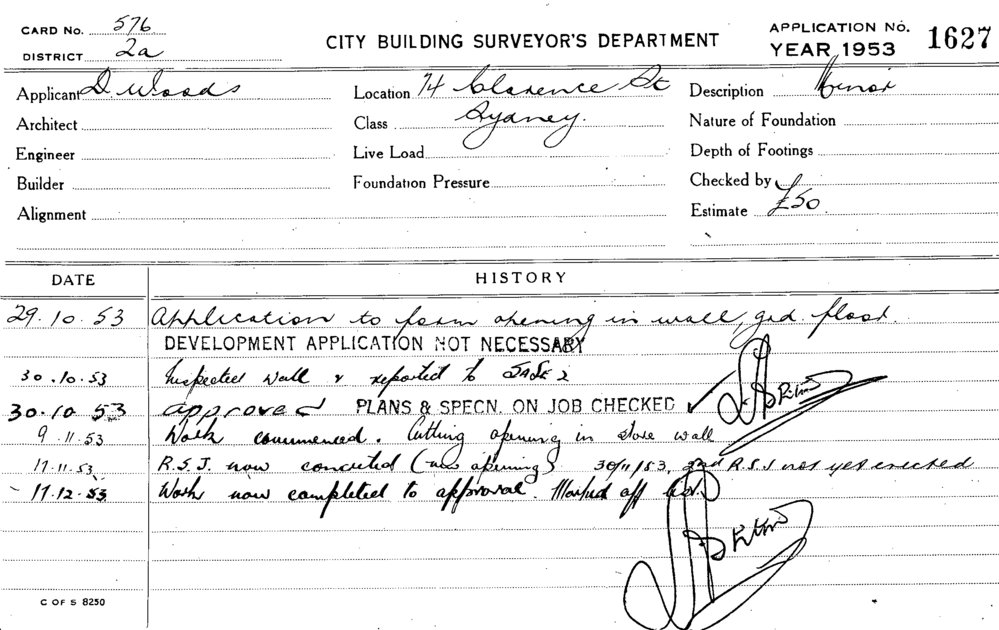 CARD No. 576
DISTRICT 2a
CITY BUILDING SURVEYOR'S DEPARTMENT
APPLICATION No. 1627
YEAR 1953
Applicant D. Woods
Location 74 Clarence St
Description Minor
Architect
Class Sydney.
Nature of Foundation
Engineer
Live Load
Depth of Footings
Builder
Foundation Pressure
Checked by
Alignment
Estimate £50
DATE HISTORY
29.10.53 Application to form opening in wall, grd. floor.
DEVELOPMENT APPLICATION NOT NECESSARY
30.10.53 Inspected wall & reported to
30.10 53 approved PLANS & SPECN. ON JOB CHECKED ✓
9.11.53 Work commenced. Cutting opening in store wall
17.11.53 R.S.J. now concreted (one opening) 30/11/53, 2nd R.S.J not yet erected
17.12.53 Work now completed to approval. Marked off
C OF S 8250